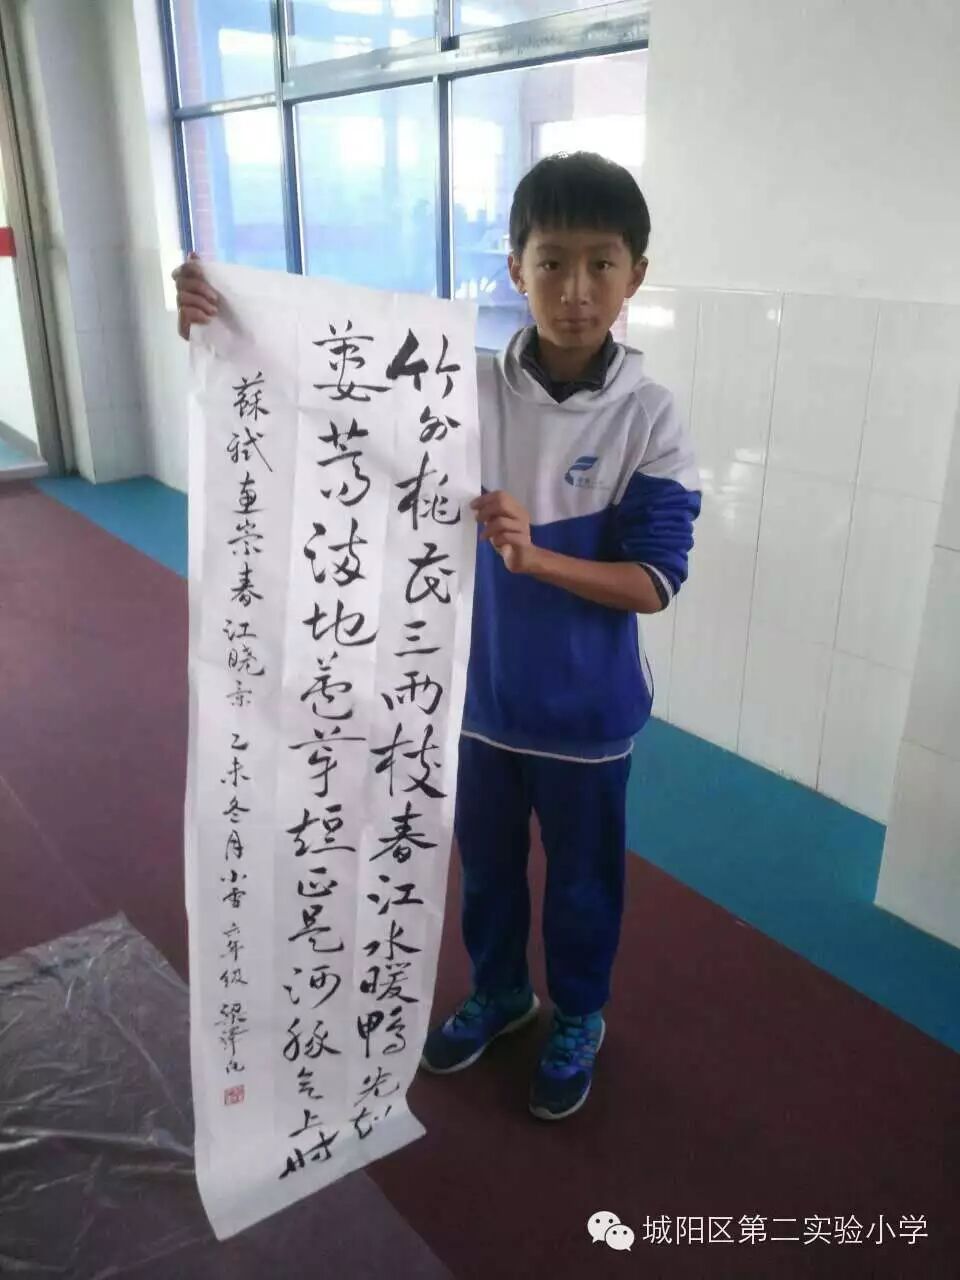 竹外桃花三兩枝春江水暖鴨先知
蔞蒿滿地蘆芽短正是河豚欲上時
蘇軾惠崇春江晓景 乙未冬月小雪 六年级 梁澤
城阳区第二实验小学